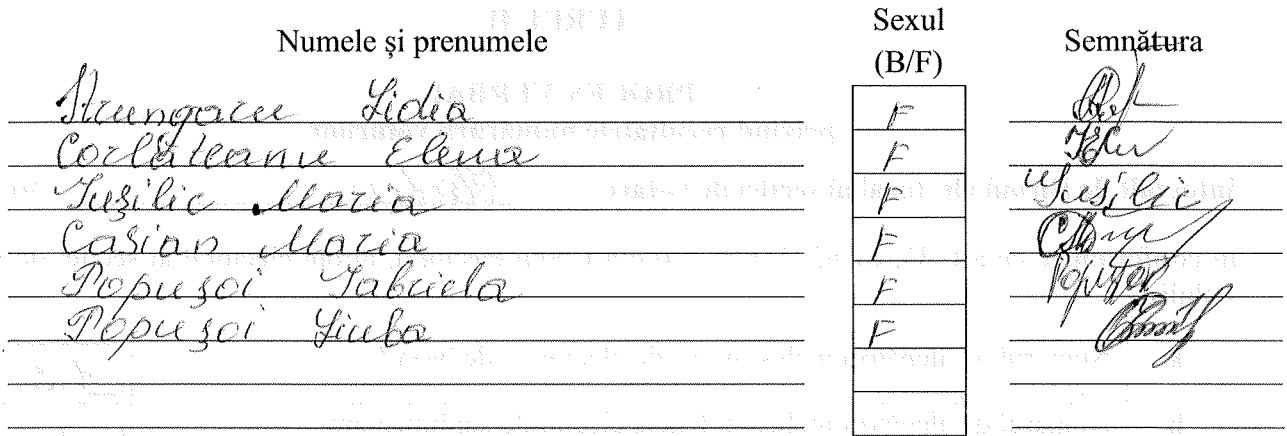 Numele și prenumele Sexul (B/F) Semnătura
Strungaru Lidia F
Corlăteanu Elena F
Iușilic Maria F Iusilic
Casian Maria F
Popușoi Gabriela F
Popușoi Liuba F